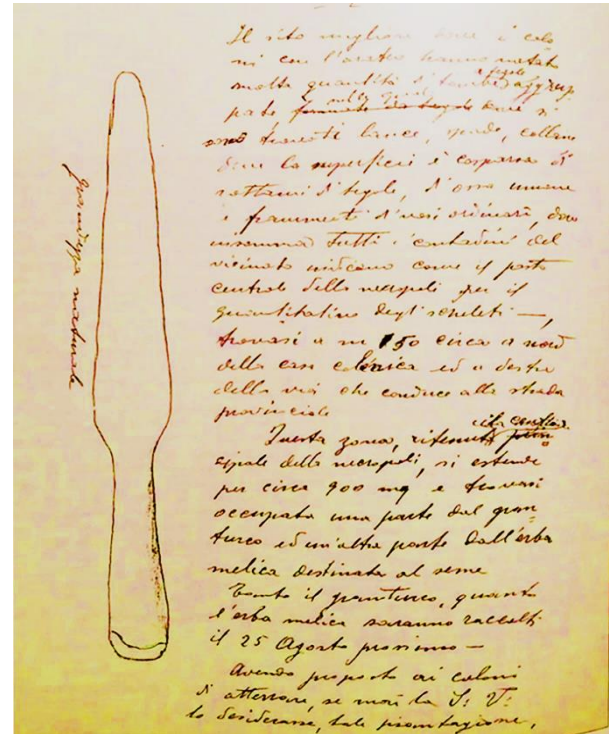 Il sito migliore dove i colo
ni con l'aratro hanno notato
molta quantità di tombe aggrup
a tegole
pate formate da tegole dove si
sono trovati lance, spade, collane
dove la superficie è cosparsa di
rottami di tegole, d'ossa umane
e frammenti di vasi ordinari, dove
insomma tutti i contadini del
vicinato indicano come il posto
centrale della necropoli per il
quantitativo degli scheletri —,
trovasi a m 150 circa a nord
della casa colonica ed a destra
della via che conduce alla strada
provinciale
Questa zona, ritenuta prin
cipale della necropoli, si estende
per circa 900 mq e trovasi
occupata una parte dal gran
turco ed un'altra parte dall'erba
melica destinata al seme
Tanto il granturco, quanto
l'erba melica saranno raccolti
il 25 Agosto prossimo —
Avendo proposto ai coloni
di atterrare, se mai la S: V:
lo desiderasse, tale piantagione,
grandezza naturale